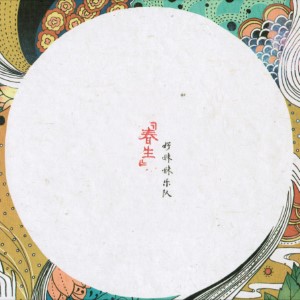 『春生』
好妹妹乐队